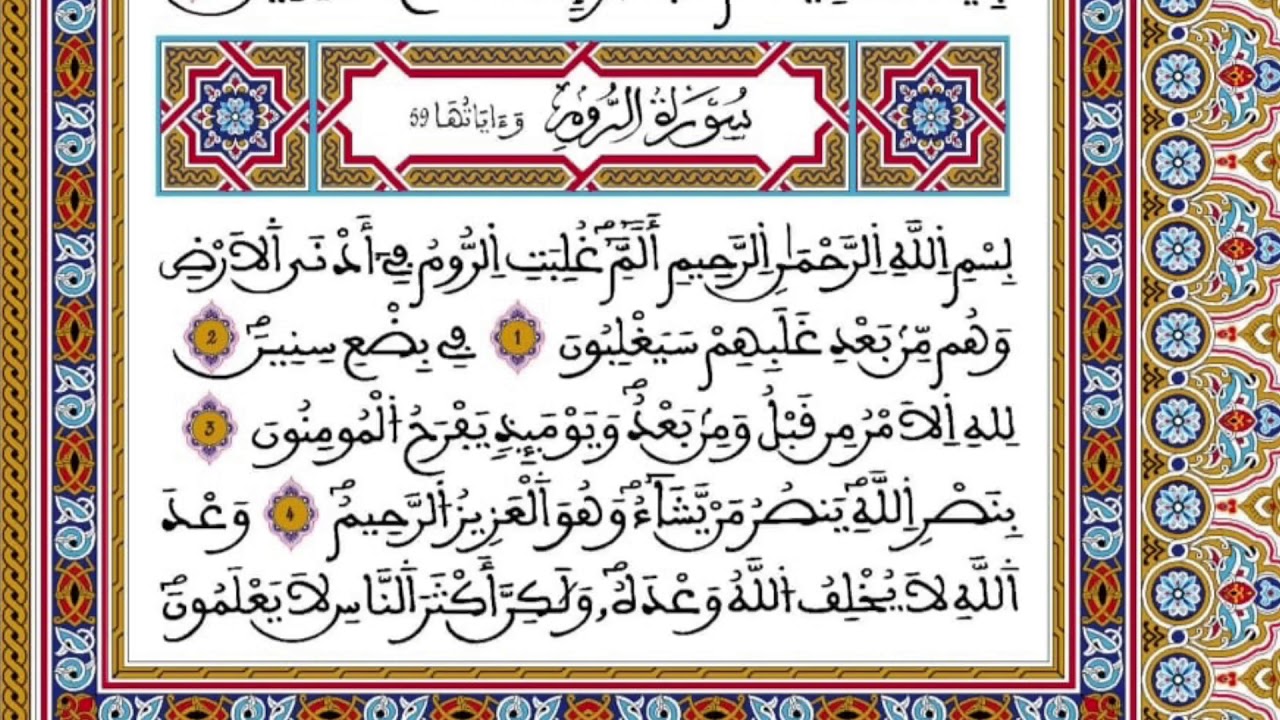 سُورَةُ الرُّومِ وَءَايَاتُهَا 59
بِسْمِ اِللَّهِ اِلرَّحْمَٰنِ اِلرَّحِيمِ أَلَٓمِّٓۖ غُلِبَتِ اِلرُّومُ فِےٓ أَدْنَى اَلَارْضِ
وَهُم مِّنۢ بَعْدِ غَلَبِهِمْ سَيَغْلِبُونَ 1 فِے بِضْعِ سِنِينَۖ 2
لِلهِ اِلَامْرُ مِن قَبْلُ وَمِنۢ بَعْدُۖ وَيَوْمَئِذٍ يَفْرَحُ اُلْمُومِنُونَ 3
بِنَصْرِ اِللَّهِۖ يَنصُرُ مَنْ يَّشَآءُۖ وَهُوَ اَلْعَزِيزُ اُلرَّحِيمُۖ 4 وَعْدَ
اَللَّهِ لَا يُخْلِفُ اُللَّهُ وَعْدَهُۥ وَلَٰكِنَّ أَكْثَرَ اَلنَّاسِ لَا يَعْلَمُونَۖ